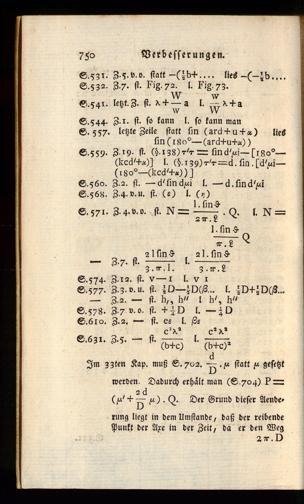 750 Verbesserungen.
S.531. Z.5.v.o. statt —(½b+.... lies —(-½b....
S.532. Z.7. st. Fig. 72. l. Fig. 73.
S.541. letzt. Z. st. λ+W/w a l. W/w λ+a
S.544. Z.1. st. so kann l. so kann man
S. 557. letzte Zeile statt sin (ard+u+α) lies
sin(180°—(ard+u+α))
S.559. Z.19. st. (§.138) τ'τ = sin d'μi—[180°—
(kcd'+α)] l. (§.139) τ'τ=d.sin.[d'μi—
(180°—(kcd'+α))]
S.560. Z.2. st. —d'sindμi l. —d.sind'μi
S.568. Z.4.v.u. st. (ε) l. (η)
S.571. Z.4.v.o. st. N = l.sin ϑ/2π.ℓ . Q. l. N =
l.sin ϑ/π.ℓ Q
— Z.7. st. 2l sin ϑ/3.π.l. l. 2l.sin ϑ/3.π.ℓ
S.574. Z.12. st. v—1 l. v 1
S.577. Z.3.v.u. st. ½D—½D(β... l. ½D+½D(β...
— Z.2. — st. h,, h'' l h', h''
S.578. Z.7 v.o. st. +¼D l. —¼D
S.610. Z.2, — st. cs l. βs
S.631. Z.5. — st. c²λ²/(b+c) l. c²λ²/(b+c)²
Im 33ten Kap. muß S.702. d/D . μ statt μ gesetzt
werden. Dadurch erhält man (S.704) P =
(μ'+2d/D μ). Q. Der Grund dieser Aende-
rung liegt in dem Umstande, daß der reibende
Punkt der Axe in der Zeit, da er den Weg
2π.D